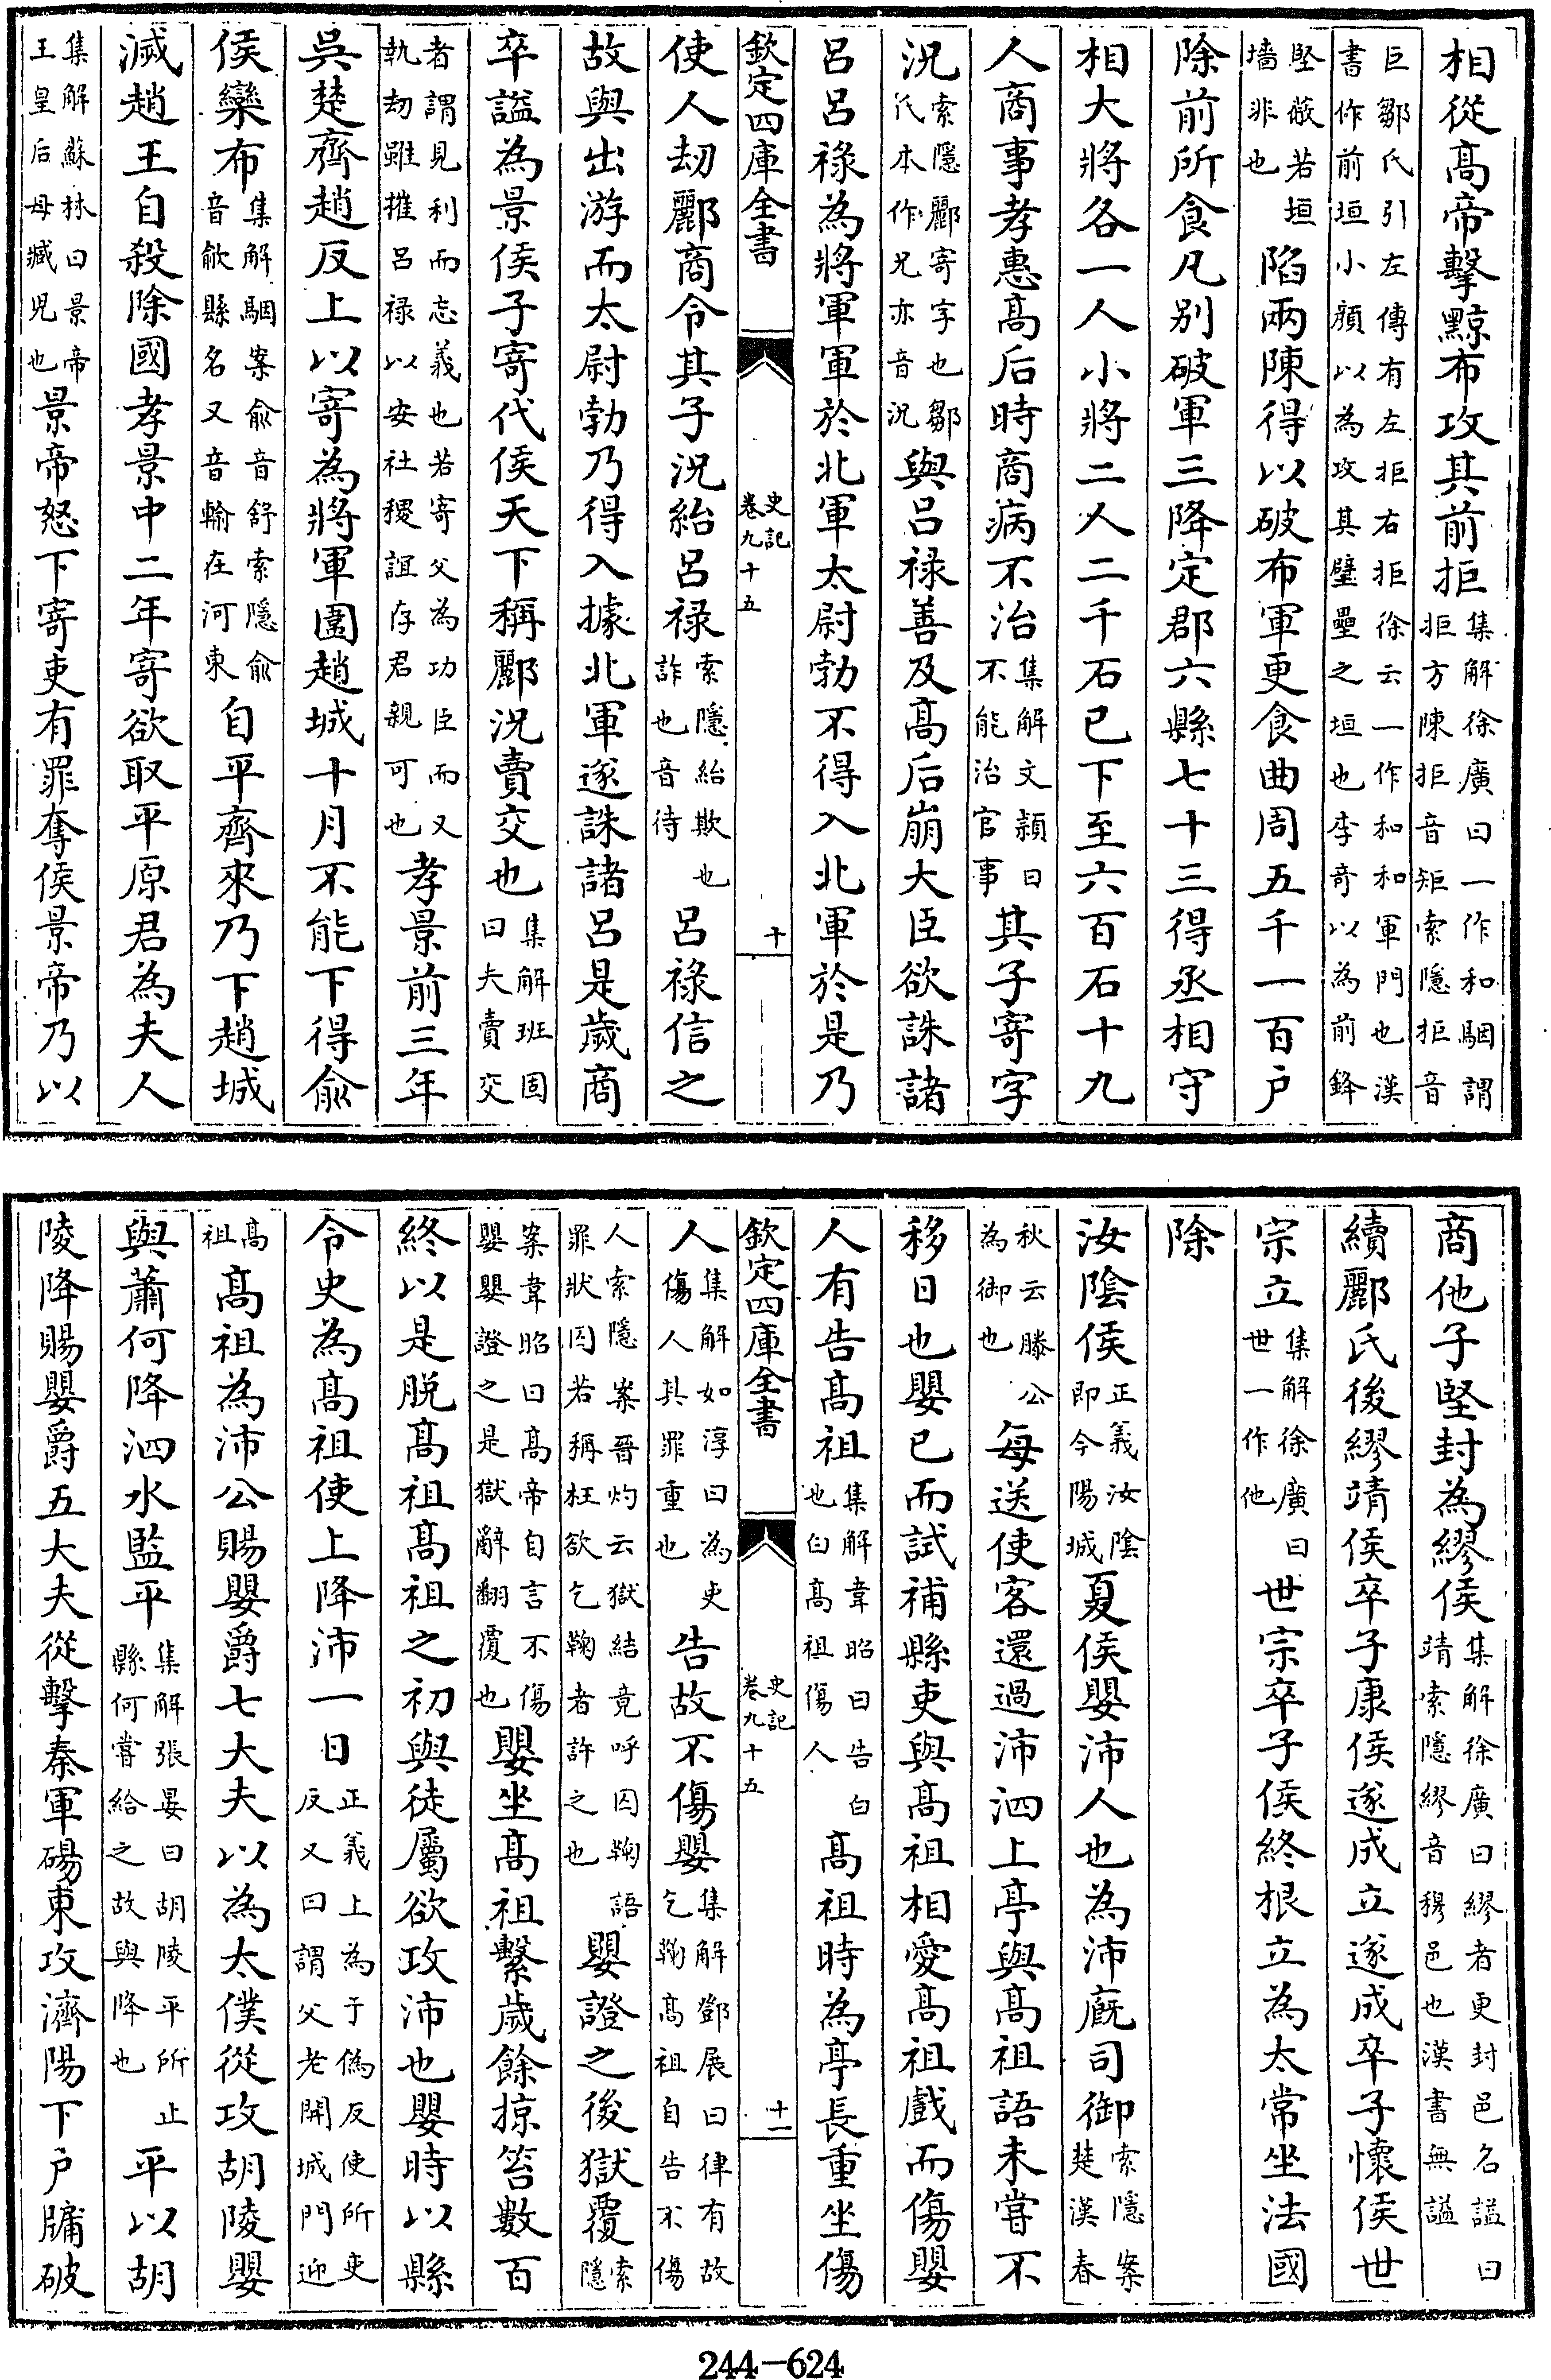 相從髙帝擊黥布攻其前拒集解徐廣曰一作和駰謂拒方陳拒音矩索隱拒音
巨鄒氏引左傳有左拒右拒徐云一作和和軍門也漢書作前垣小顔以為攻其壁壘之垣也李竒以為前鋒
堅蔽若垣墻非也陷兩陳得以破布軍更食曲周五千一百户
除前所食凡别破軍三降定郡六縣七十三得丞相守
相大將各一人小將二人二千石已下至六百石十九
人商事孝惠髙后時商病不治集解文頴曰不能治官事其子寄字
況索隱酈寄字也鄒氏本作兄亦音況與吕禄善及髙后崩大臣欲誅諸
吕吕禄為將軍軍於北軍太尉勃不得入北軍於是乃
欽定四庫全書 史記卷九十五 十
使人刼酈商令其子況紿吕禄索隱紿欺也詐也音待吕禄信之
故與出游而太尉勃乃得入據北軍遂誅諸吕是歲商
卒諡為景侯子寄代侯天下稱酈況賣交也集解班固曰夫賣交
者謂見利而忘義也若寄父為功臣而又執刼雖摧吕禄以安社稷誼存君親可也孝景前三年
吳楚齊趙反上以寄為將軍圍趙城十月不能下得俞
侯欒布集解駰案俞音舒索隱俞音歈縣名又音輸在河東自平齊來乃下趙城
滅趙王自殺除國孝景中二年寄欲取平原君為夫人
集解蘇林曰景帝王皇后母臧兒也景帝怒下寄吏有罪奪侯景帝乃以
商他子堅封為繆侯集解徐廣曰繆者更封邑名諡曰靖索隱繆音穆邑也漢書無諡
續酈氏後繆靖侯卒子康侯遂成立遂成卒子懷侯世
宗立集解徐廣曰世一作他世宗卒子侯終根立為太常坐法國
除
汝隂侯正義汝隂即今陽城夏侯嬰沛人也為沛廐司御索隱案楚漢春
秋云滕公為御也每送使客還過沛泗上亭與髙祖語未嘗不
移日也嬰已而試補縣吏與髙祖相愛髙祖戲而傷嬰
人有告髙祖集解韋昭曰告白也白髙祖傷人髙祖時為亭長重坐傷
欽定四庫全書 史記卷九十五 十一
人集解如淳曰為吏傷人其罪重也告故不傷嬰集解鄧展曰律有故乞鞫髙祖自告不傷
人索隱案晉灼云獄結竟呼囚鞫語罪狀囚若稱枉欲乞鞫者許之也嬰證之後獄覆索隱
案韋昭曰髙帝自言不傷嬰嬰證之是獄辭翻覆也嬰坐髙祖繫歲餘掠笞數百
終以是脱髙祖髙祖之初與徒屬欲攻沛也嬰時以縣
令史為髙祖使上降沛一日正義上為于偽反使所吏反又曰謂父老開城門迎
髙祖髙祖為沛公賜嬰爵七大夫以為太僕從攻胡陵嬰
與蕭何降泗水監平集解張晏曰胡陵平所止縣何嘗給之故與降也平以胡
陵降賜嬰爵五大夫從擊秦軍碭東攻濟陽下户牖破
244-624